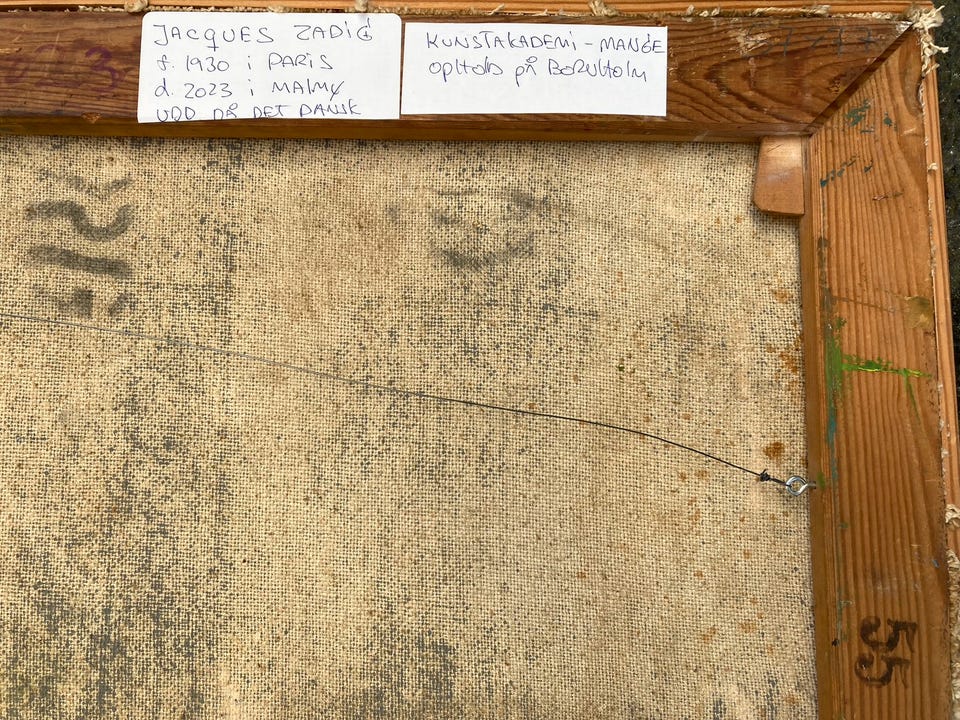 JACQUES ZADIG
f. 1930 i PARIS
d. 2023 i MALMY
UDD PÅ DET DANSK
KUNSTAKADEMI - MANGE
opholds på BORNHOLM
55